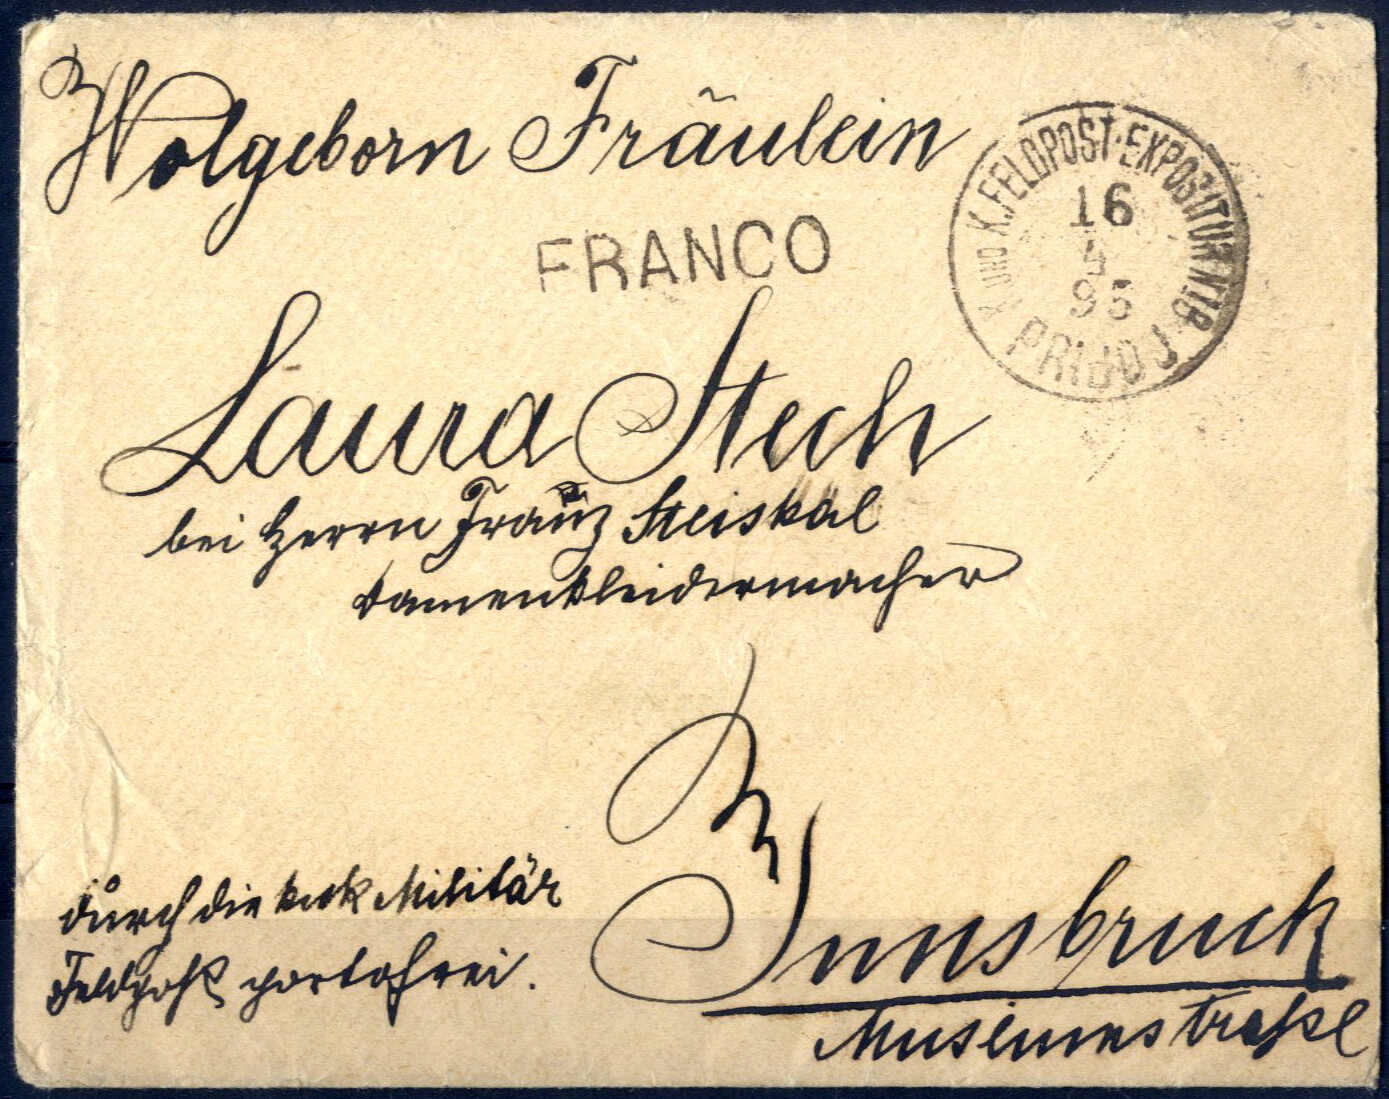 Wolgeborn Fräulein
K. UND K. FELDPOST-EXPOSITUR N
16
4
95
PRIBOJ
FRANCO
Laura Stech
bei Herrn Franz Steiskal
Damenkleidermacher
Innsbruck
Museumstraße
durch die k u k Militär
Feldpost portofrei.